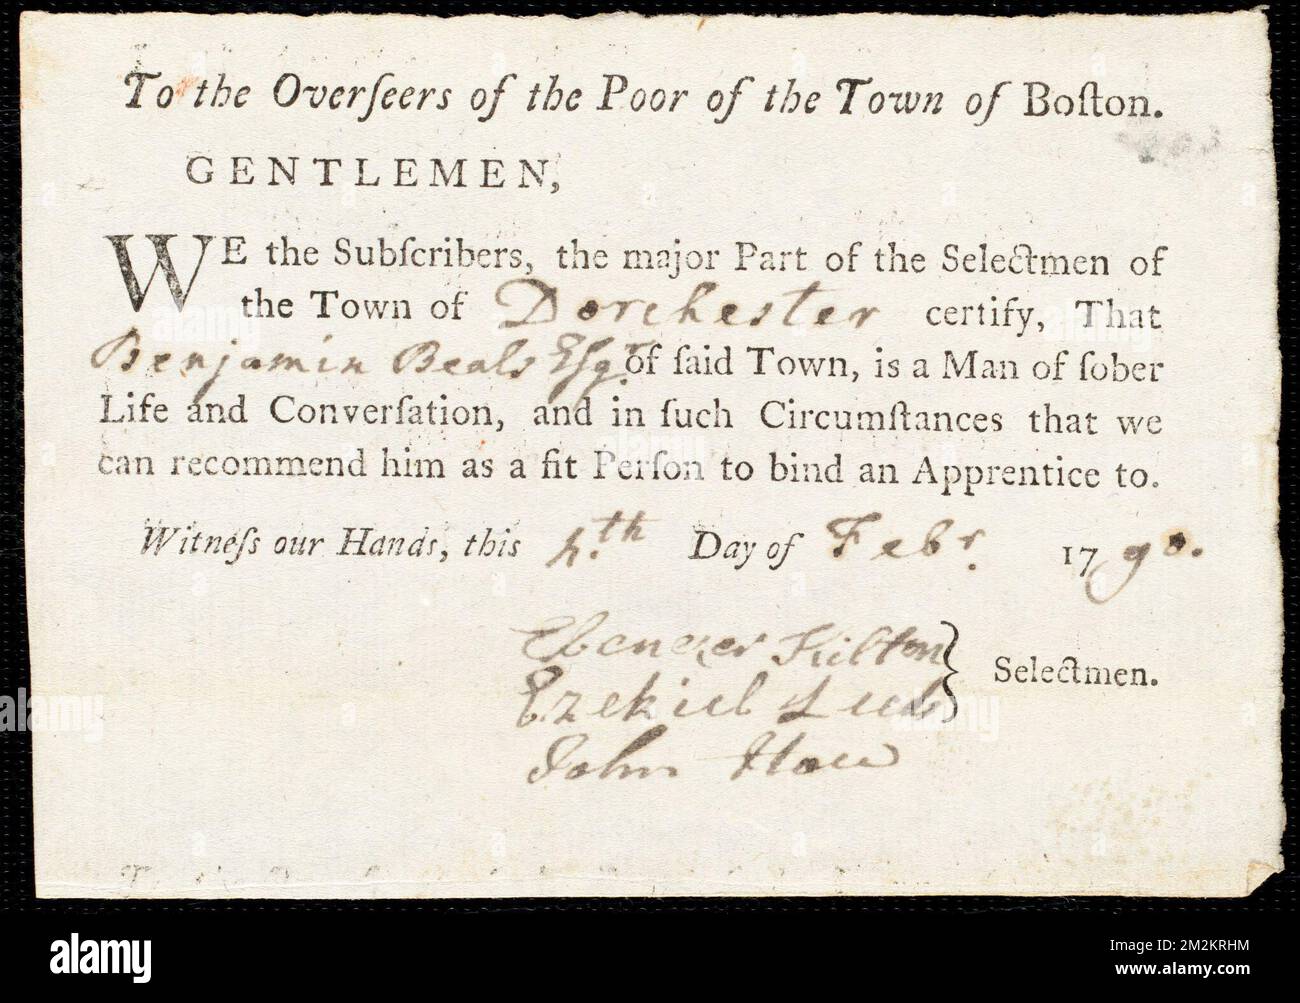 To the Overſeers of the Poor of the Town of Boſton.
GENTLEMEN,
WE the Subſcribers, the major Part of the Selectmen of
the Town of Dorchester certify, That
Benjamin Beals Esqr. of ſaid Town, is a Man of ſober
Life and Converſation, and in ſuch Circumſtances that we
can recommend him as a fit Perſon to bind an Apprentice to.
Witneſs our Hands, this 4.th Day of Febr. 1790.
Ebenezer Kilton
Ezekiel
John How
Selectmen.
alamy
Image ID: 2M2KRHM
www.alamy.com